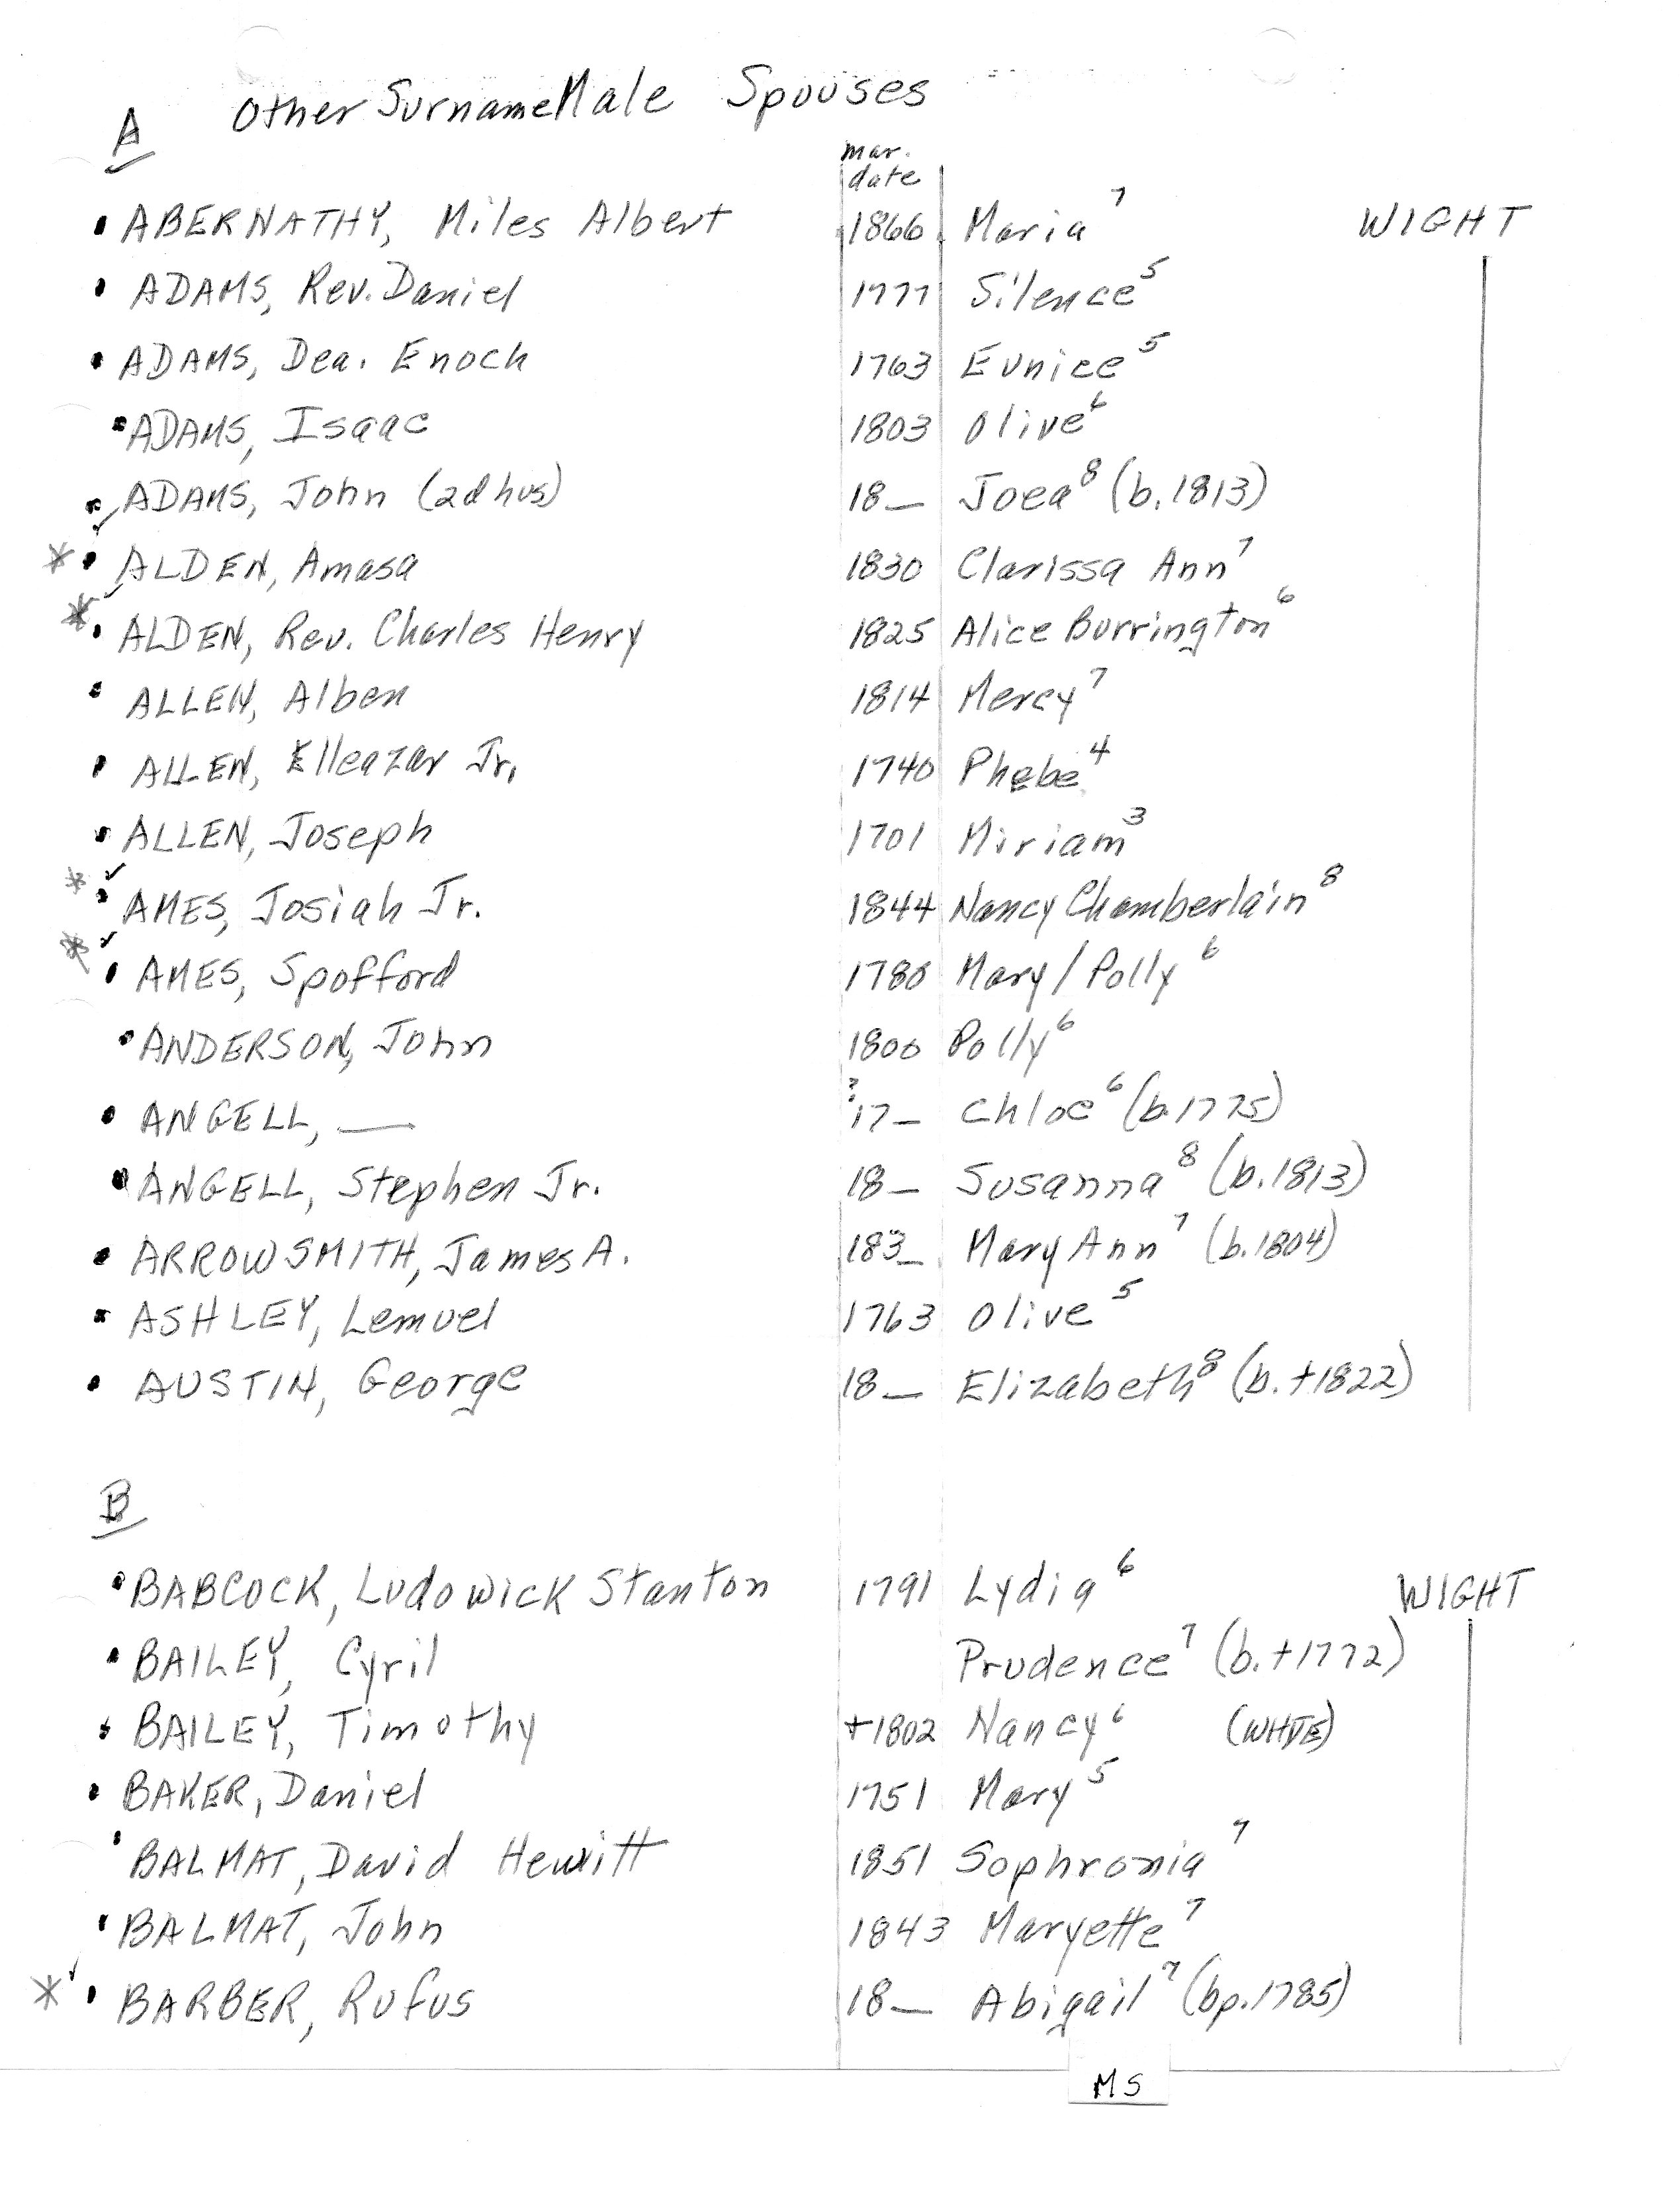 A Other Surname Male Spouses
mar.
date
• ABERNATHY, Miles Albert 1866 Maria⁷ WIGHT
• ADAMS, Rev. Daniel 1777 Silence⁵
• ADAMS, Dea. Enoch 1763 Eunice⁵
• ADAMS, Isaac 1803 Olive⁶
• ADAMS, John (2d hus) 18— Joea⁸ (b. 1813)
* ✓ • ALDEN, Amasa 1830 Clarissa Ann⁷
* ✓ • ALDEN, Rev. Charles Henry 1825 Alice Burrington⁶
• ALLEN, Alben 1814 Mercy⁷
• ALLEN, Elleazar Jr. 1740 Phebe⁴
• ALLEN, Joseph 1701 Miriam³
* ✓ • AMES, Josiah Jr. 1844 Nancy Chamberlain⁸
* ✓ • AMES, Spofford 1780 Mary / Polly⁶
• ANDERSON, John 1800 Polly⁶
• ANGELL, — ?17— Chloe⁶ (b. 1775)
• ANGELL, Stephen Jr. 18— Susanna⁸ (b. 1813)
• ARROWSMITH, James A. 183_ Mary Ann⁷ (b. 1804)
• ASHLEY, Lemuel 1763 Olive⁵
• AUSTIN, George 18— Elizabeth⁸ (b. +1822)
B
• BABCOCK, Ludowick Stanton 1791 Lydia⁶ WIGHT
• BAILEY, Cyril Prudence⁷ (b. +1772)
• BAILEY, Timothy +1802 Nancy⁶ (WHITE)
• BAKER, Daniel 1751 Mary⁵
• BALMAT, David Hewitt 1851 Sophronia⁷
• BALMAT, John 1843 Maryette⁷
* ✓ • BARBER, Rufus 18— Abigail⁷ (bp. 1785)
MS